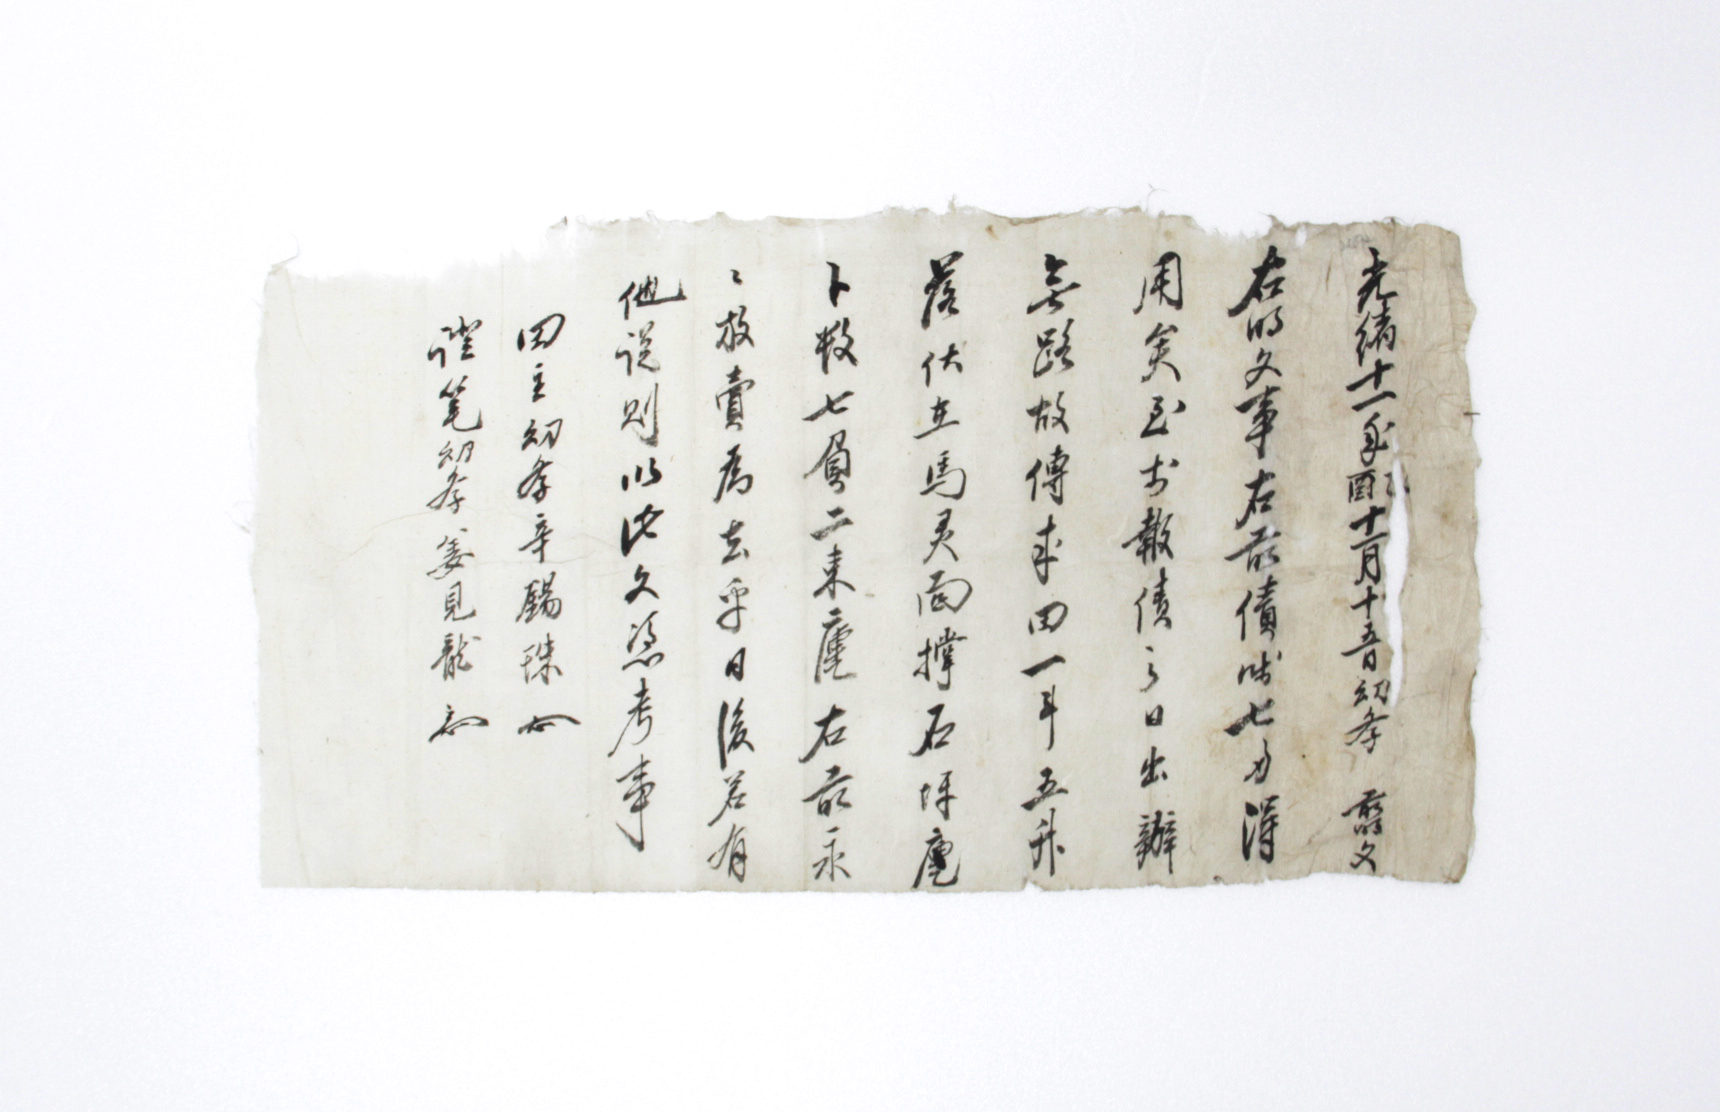 光緖十一年乙酉十一月十五日幼學 前明文
右明文事右前債錢七百淂
用矣至於報債之日出辦
無路故傳來田一斗五升
落伏在馬灵面撑石坪處
卜数七負二束廛右前永
〻放賣爲去乎日後若有
他說則以此文憑考事
田主幼學辛錫珠
證筆幼學姜見龍